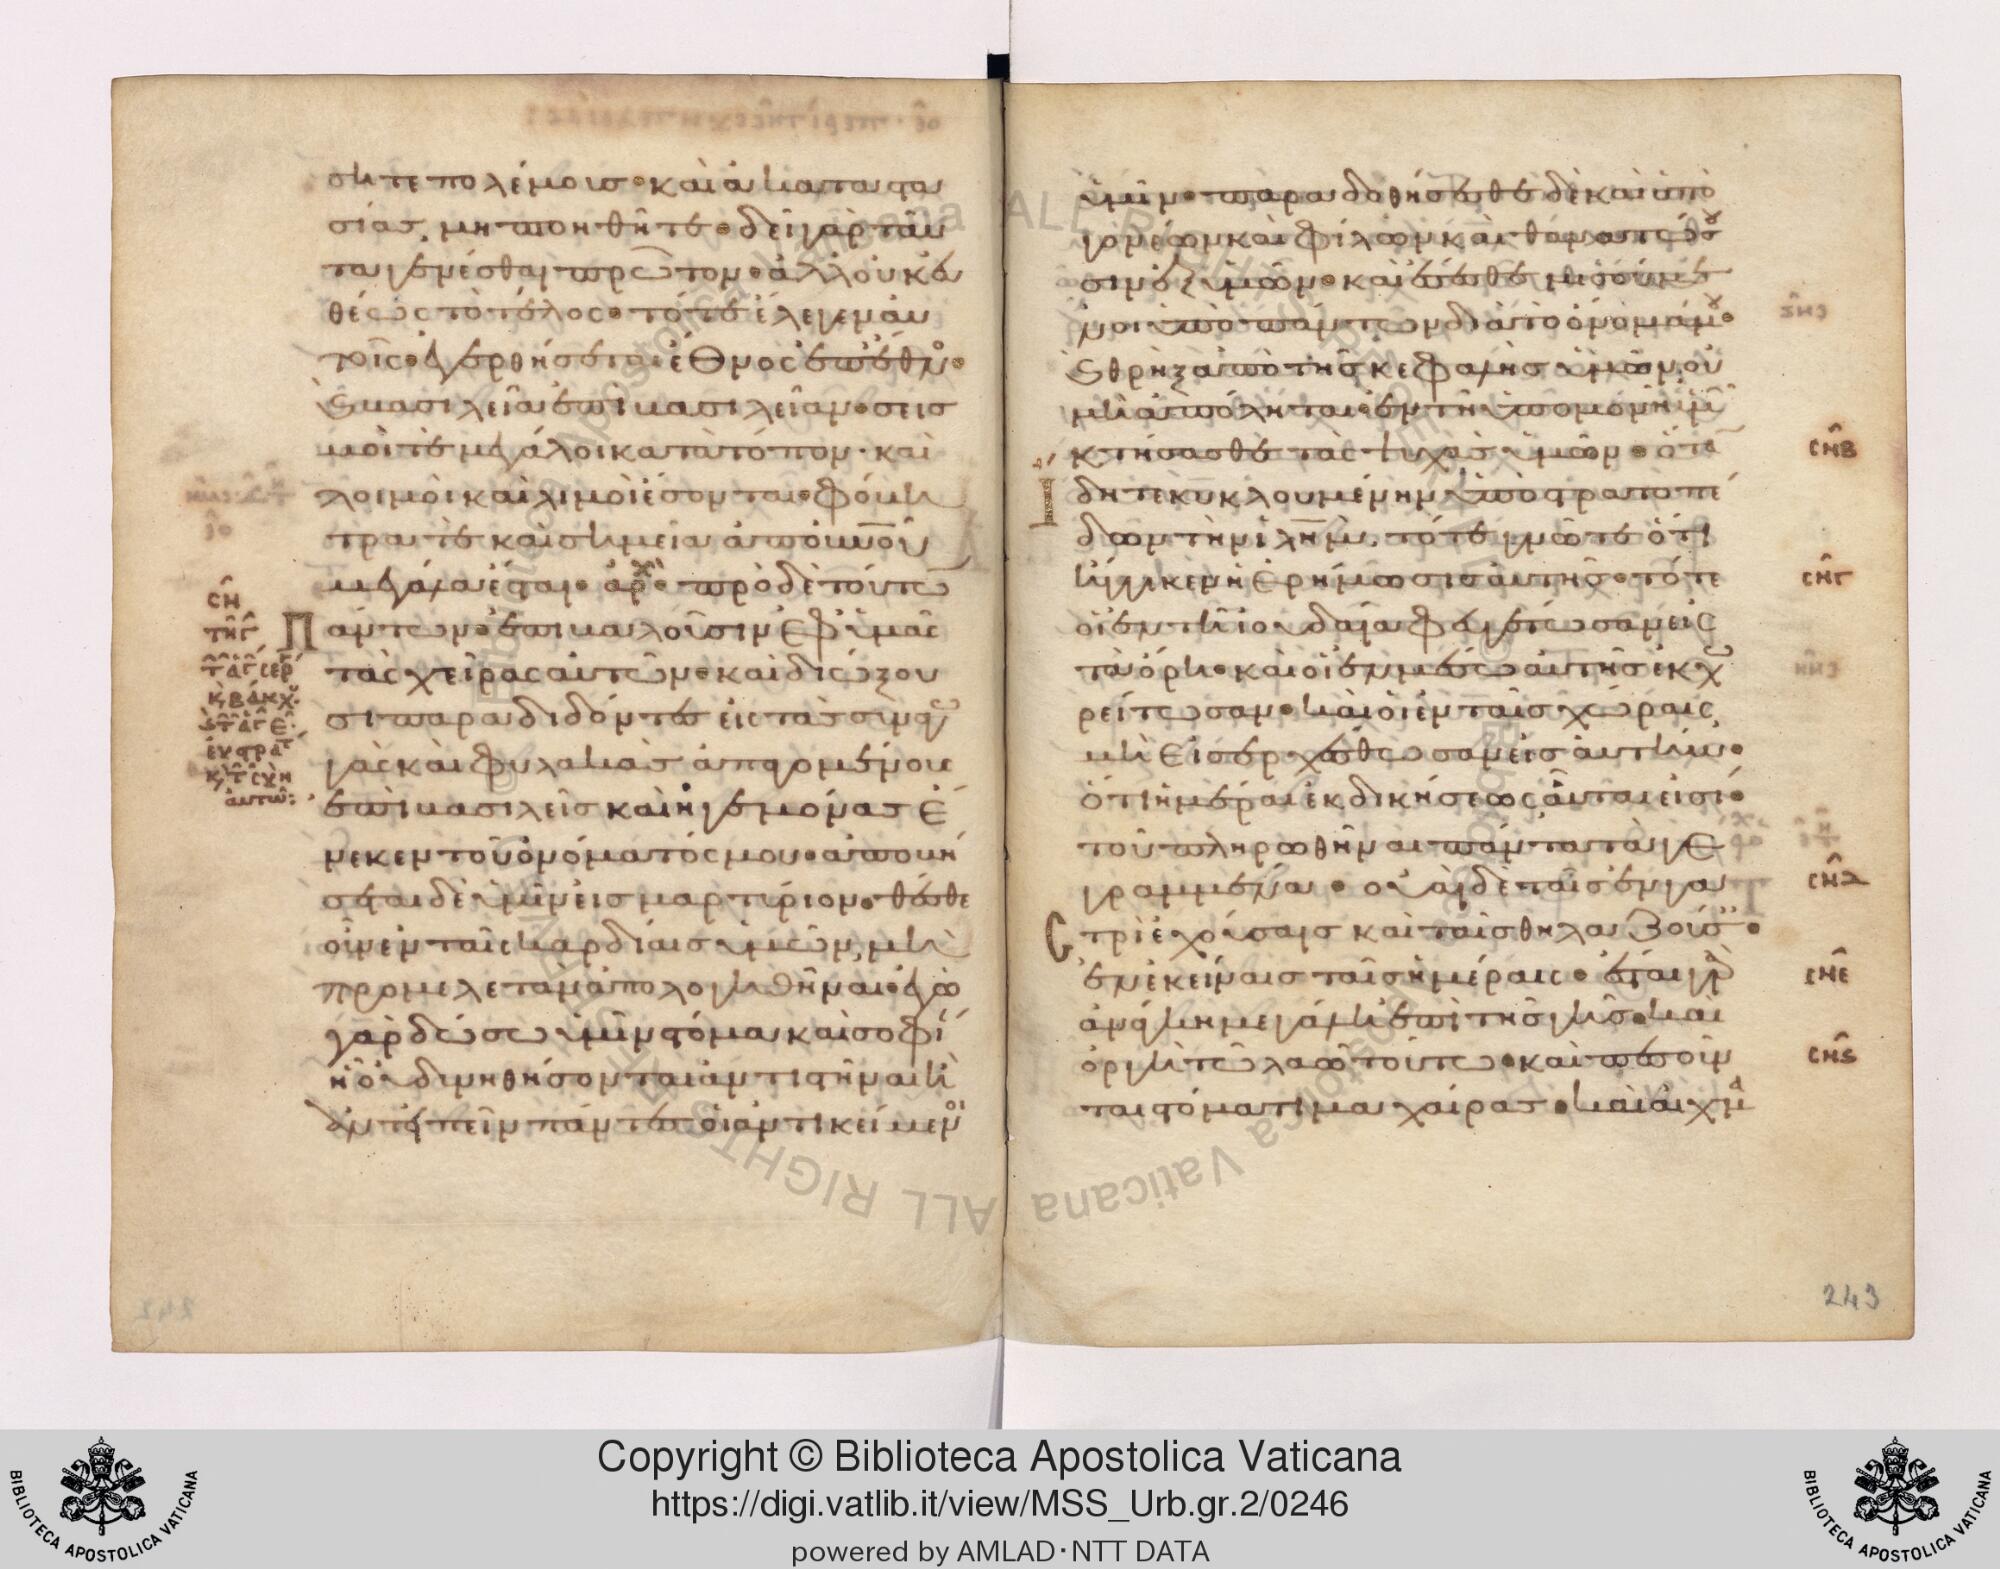 σητε πολέμους· καὶ ἀκαταστα
σίας, μὴ πτοηθῆτε· δεῖ γὰρ ταῦ
τα γενέσθαι πρῶτον· ἀλλ' οὐκ εὐ
θέως τὸ τέλος· τότε ἔλεγεν αὐ
τοῖς· ἐγερθήσεται ἔθνος ἐπὶ ἔθνο·
καὶ βασιλεία ἐπὶ βασιλείαν· σεισ
μοί τε μεγάλοι κατὰ τόπον· καὶ
λοιμοὶ καὶ λιμοὶ ἔσονται· φόβη
τρα τε καὶ σημεῖα ἀπὸ οὐνοῦ
μεγάλα ἔσται· ἀρχ· πρὸ δὲ τούτω
Πάντων· ἐπιβαλοῦσιν ἐφ' ὑμᾶς
τὰς χεῖρας αὐτῶν· καὶ διώξου
σι παραδιδόντες εἰς τὰς συναγω
γὰς καὶ φυλακὰς ἀπαγομένους
ἐπὶ βασιλεῖς καὶ ἡγεμόνας ἕ
νεκεν τοῦ ὀνόματός μου· ἀποβή
σεται δὲ ὑμῖν εἰς μαρτύριον· θέσθε
οὖν ἐν ταῖς καρδίαις ὑμῶν, μὴ
προμελετᾶν ἀπολογηθῆναι· ἐγὼ
γὰρ δώσω ὑμῖν στόμα καὶ σοφί
ᾗ οὐ δυνηθήσονται ἀντιστῆναι ἢ
ἀντειπεῖν πάντες οἱ ἀντικείμενοι
ὑμῖν· παραδοθήσεσθε δὲ καὶ ὑπὸ
γονέων καὶ φίλων καὶ θανατώσου
σιν ἐξ ὑμῶν· καὶ ἔσεσθε μισούμε
νοι ὑπὸ πάντων διὰ τὸ ὄνομά μου·
καὶ θρὶξ ἀπὸ τῆς κεφαλῆς ὑμῶν οὐ
μὴ ἀπόληται· ἐν τῇ ὑπομονῇ ὑμ
κτήσασθε τὰς ψυχὰς ὑμῶν· ὅταν
ἴδητε κυκλουμένην ὑπὸ στρατοπέ
δων τὴν ἰλημ, τότε γνῶτε ὅτι
ἤγγικεν ἡ ἐρήμωσις αὐτῆς· τότε
οἱ ἐν τῇ ἰουδαίᾳ φευγέτωσαν εἰς
τὰ ὄρη· καὶ οἱ ἐν μέσω αὐτῆς ἐκχω
ρείτωσαν· καὶ οἱ ἐν ταῖς χώραις,
μὴ εἰσερχέσθωσαν εἰς αὐτήν·
ὅτι ἡμέραι ἐκδικήσεως αὗταί εἰσι·
τοῦ πληρωθῆναι πάντα τὰ γε
γραμμένα· οὐαὶ δὲ ταῖς ἐν γα
στρὶ ἐχούσαις καὶ ταῖς θηλαζούσ·
ἐν ἐκείναις ταῖς ἡμέραις· ἔσται γὰρ
ἀνάγκη μεγάλη ἐπὶ τῆς γῆς· καὶ
ὀργὴ τῶ λαῶ τούτω· καὶ πεσοῦν
ται στόματι μαχαίρας· καὶ αἰχμα
σηβ
σηγ
σηδ
σηε
σης
243
Copyright © Biblioteca Apostolica Vaticana
https://digi.vatlib.it/view/MSS_Urb.gr.2/0246
powered by AMLAD·NTT DATA
BIBLIOTECA APOSTOLICA VATICANA
BIBLIOTECA APOSTOLICA VATICANA